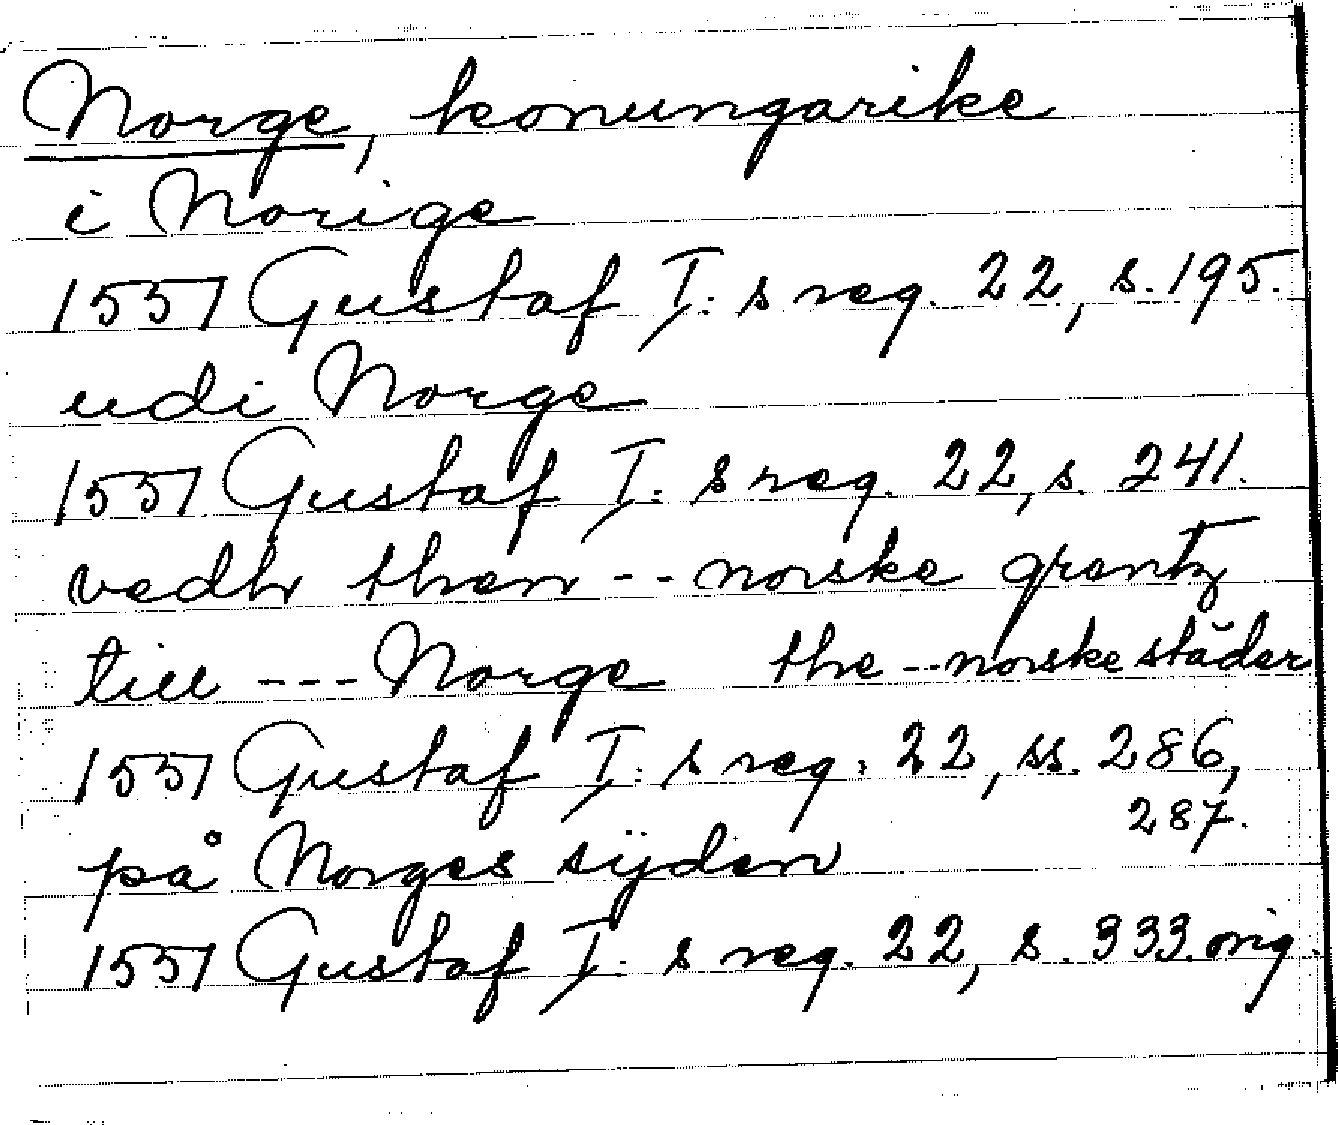 Norge, konungarike
i Norige
1551 Gustaf I:s reg. 22, s. 195.
udi Norge
1551 Gustaf I:s reg. 22, s. 241.
vedh then -- norske grentz
till --- Norge the -- norske städer
1551 Gustaf I:s reg. 22, ss. 286,
287.
på Norges sijden
1551 Gustaf I:s reg. 22, s. 333. orig.